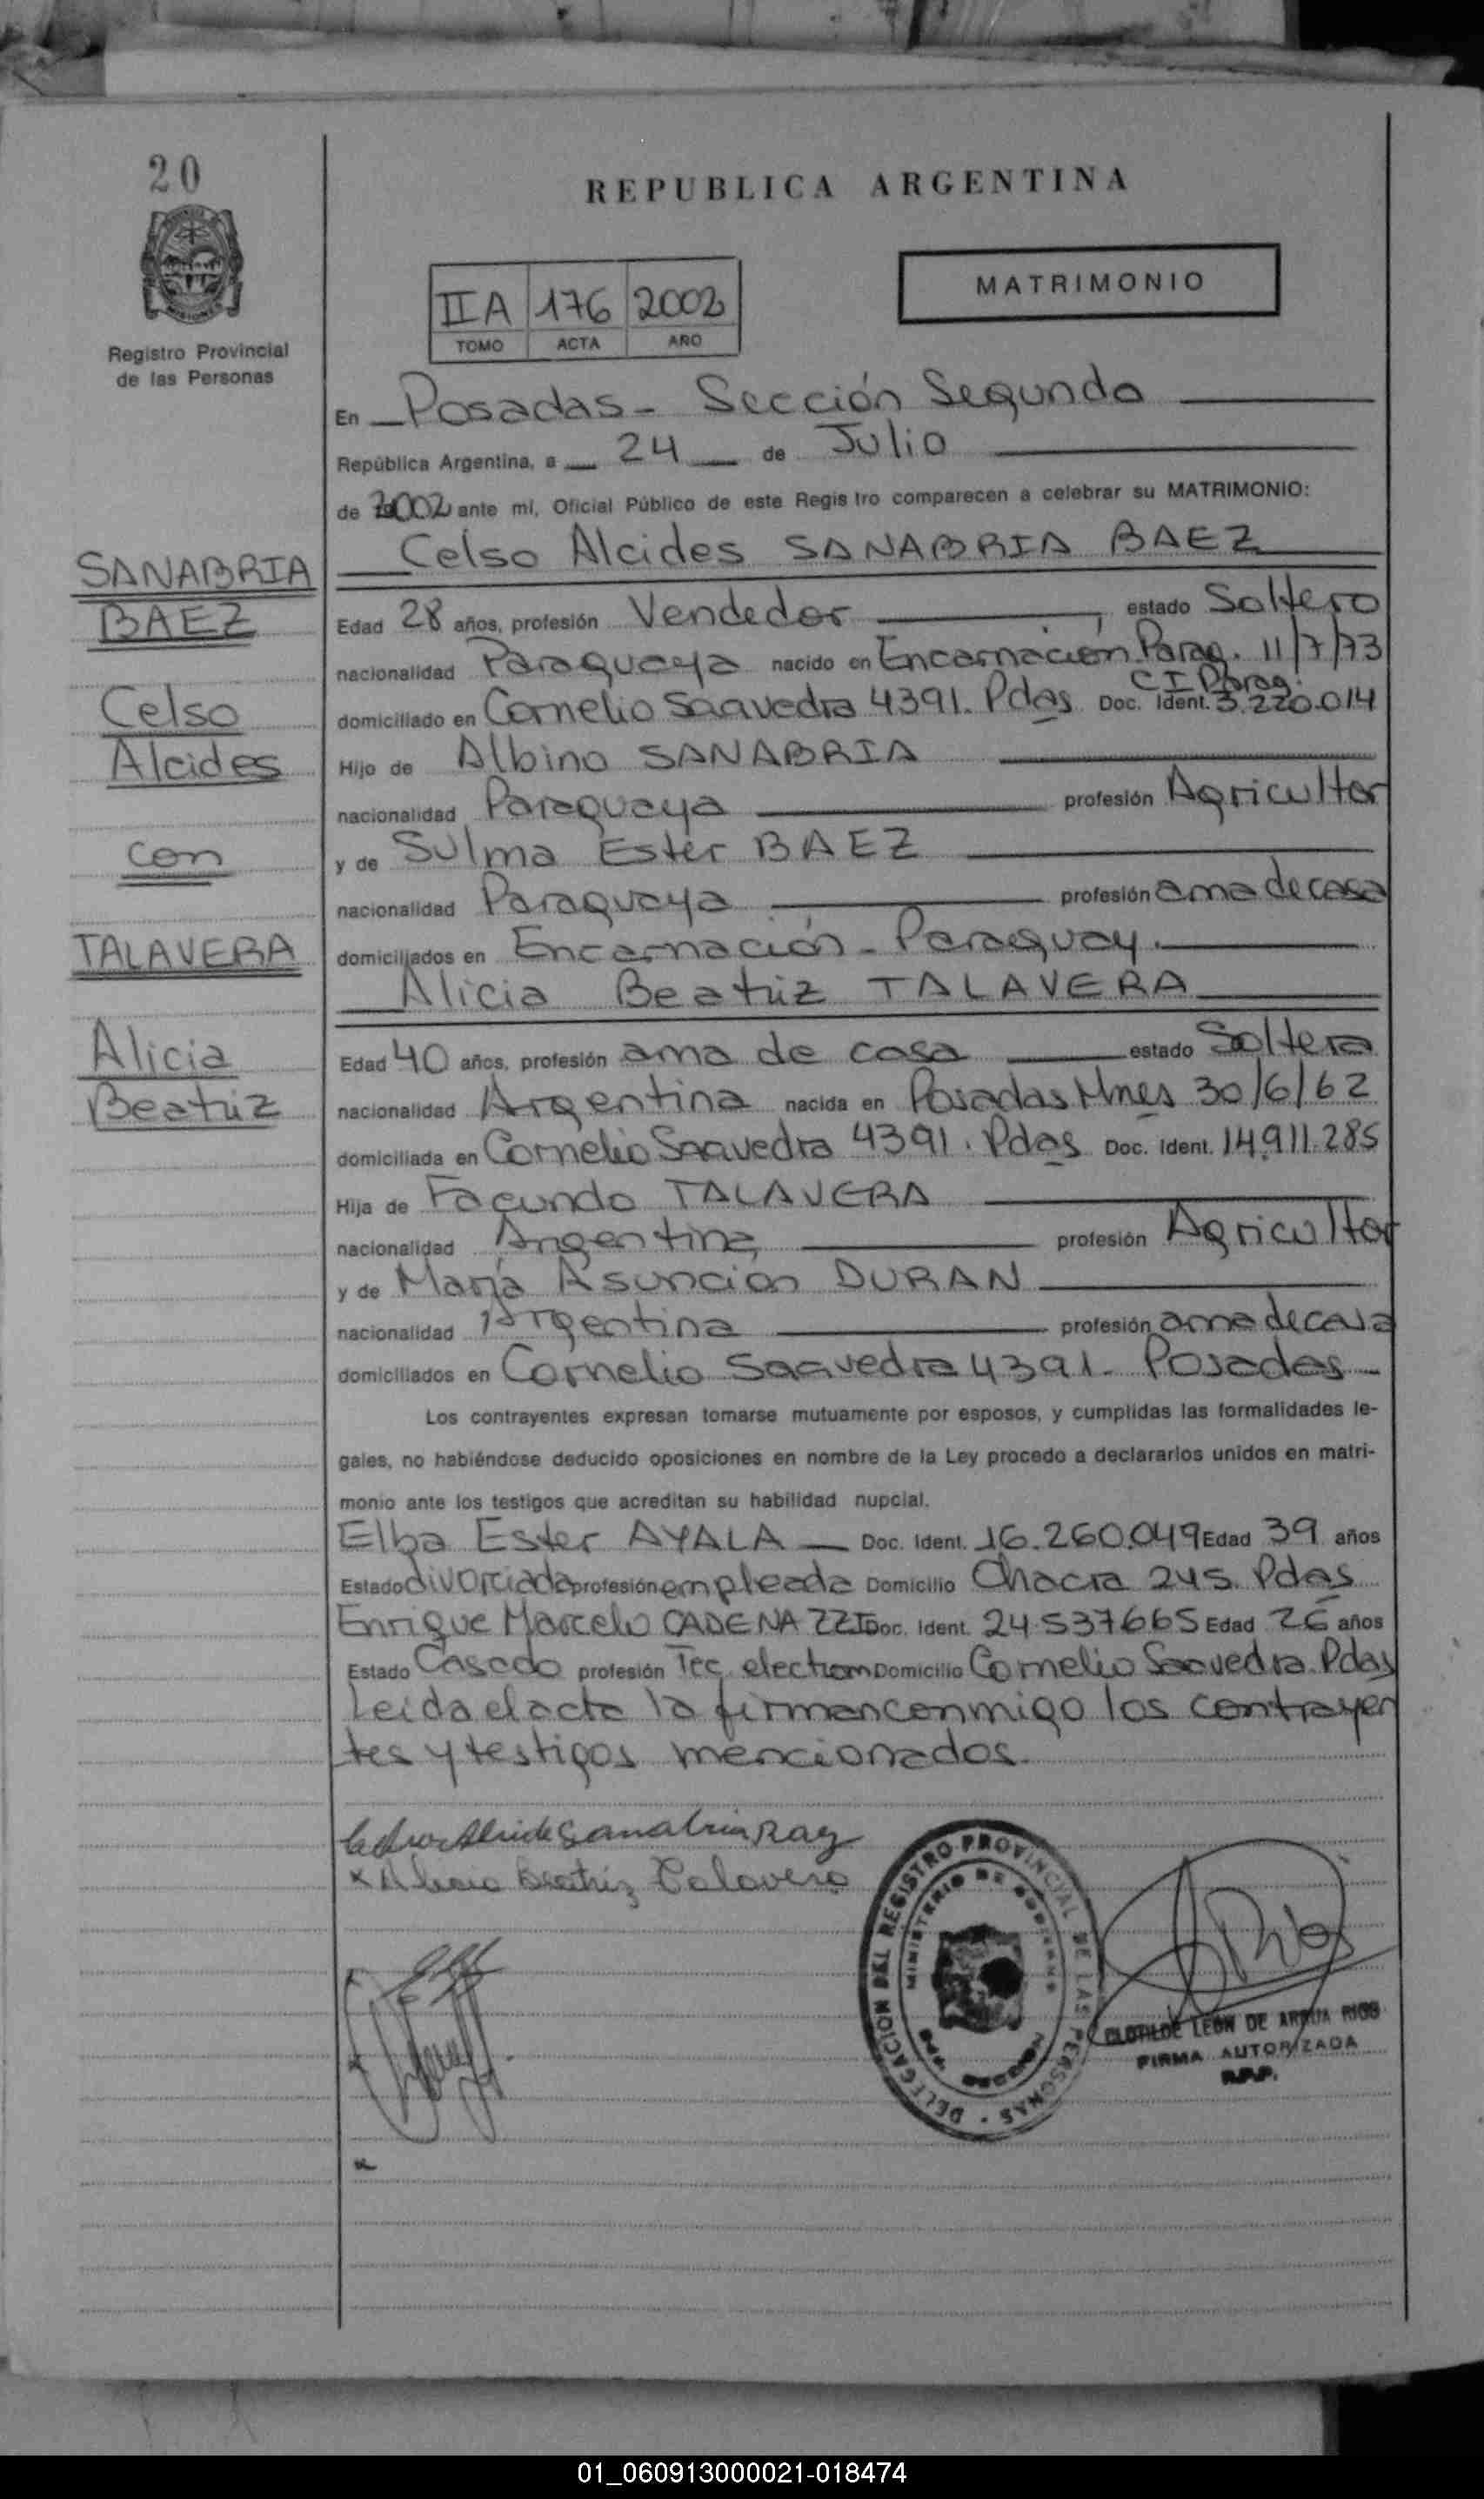 20
REPUBLICA ARGENTINA
MISIONES
Registro Provincial
de las Personas
IIA 176 2002
TOMO ACTA AÑO
MATRIMONIO
En Posadas - Sección Segunda
República Argentina, a 24 de Julio
de 2002 ante mí, Oficial Público de este Registro comparecen a celebrar su MATRIMONIO:
Celso Alcides SANABRIA BAEZ
SANABRIA
BAEZ
Celso
Alcides
con
TALAVERA
Alicia
Beatriz
Edad 28 años, profesión Vendedor, estado Soltero
nacionalidad Paraguaya nacido en Encarnación Parag. 11/7/73
C I Parag.
domiciliado en Cornelio Saavedra 4391. Pdas Doc. Ident. 3.220.014
Hijo de Albino SANABRIA
nacionalidad Paraguaya profesión Agricultor
y de Sulma Ester BAEZ
nacionalidad Paraguaya profesión ama de casa
domiciliados en Encarnación - Paraguay.
Alicia Beatriz TALAVERA
Edad 40 años, profesión ama de casa estado Soltera
nacionalidad Argentina nacida en Posadas Mnes 30/6/62
domiciliada en Cornelio Saavedra 4391. Pdas Doc. Ident. 14.911.285
Hija de Facundo TALAVERA
nacionalidad Argentina profesión Agricultor
y de María Asunción DURAN
nacionalidad Argentina profesión ama de casa
domiciliados en Cornelio Saavedra 4391 - Posadas
Los contrayentes expresan tomarse mutuamente por esposos, y cumplidas las formalidades le-
gales, no habiéndose deducido oposiciones en nombre de la Ley procedo a declararlos unidos en matri-
monio ante los testigos que acreditan su habilidad nupcial.
Elba Ester AYALA Doc. Ident. 16.260.049 Edad 39 años
Estado divorciada profesión empleada Domicilio Chacra 245. Pdas
Enrique Marcelo CADENAZZI Doc. Ident. 24.537665 Edad 26 años
Estado Casado profesión Tec. electrom Domicilio Cornelio Saavedra. Pdas
Leída el acta la firman conmigo los contrayen
tes y testigos mencionados.
Alcides Sanabria Baez
x Alicia Beatriz Talavera
DELEGACION DEL REGISTRO PROVINCIAL DE LAS PERSONAS
MINISTERIO DE GOBIERNO
CLOTILDE LEON DE ARRUA RIOS
FIRMA AUTORIZADA
R.P.P.
01_060913000021-018474